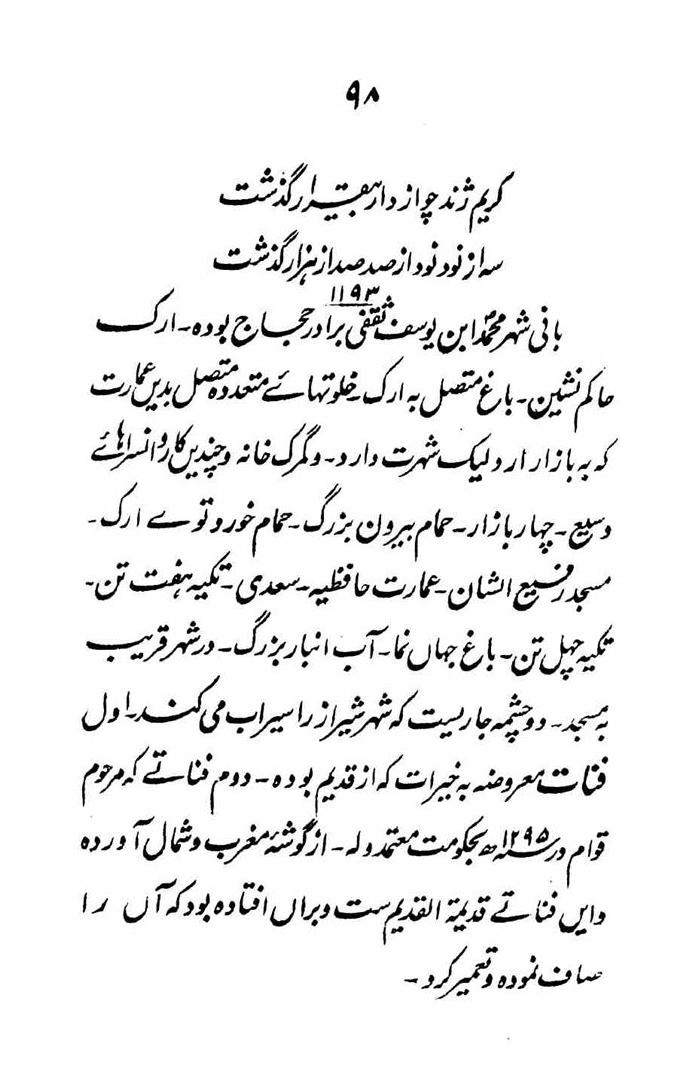 ۹۸
کریم ژند چو از دار بیقرار گذشت
سه از نود نود از صد صد از هزار گذشت
۱۱۹۳
بانی شهر محمد ابن یوسف ثقفی برادر حجاج بوده۔ ارک
حاکم نشین۔ باغ متصل به ارک۔ خلوتهائے متعدده متصل بدیں عمارت
که به بازار ارد لیک شهرت دارد۔ و گمرک خانه و چندیں کاروانسراهائے
وسیع۔ چهار بازار۔ حمام بیرون بزرگ۔ حمام خورد توے ارک۔
مسجد رفیع الشان۔ عمارت حافظیه۔ سعدی۔ تکیه هفت تن۔
تکیه چهل تن۔ باغ جهاں نما۔ آب انبار بزرگ۔ در شهر قریب
به مسجد۔ دو چشمه جاریست که شهر شیراز را سیراب می کند۔ اول
فنات معروضه به خیرات که از قدیم بوده۔ دوم فناتے که مرحوم
قوام در سنه ۱۲۹۵ھ بحکومت معتمد وله۔ از گوشهٔ مغرب و شمال آورده
وایں فناتے قدیمة القدیم ست ویراں افتاده بود که آں را
صاف نموده و تعمیر کرد۔